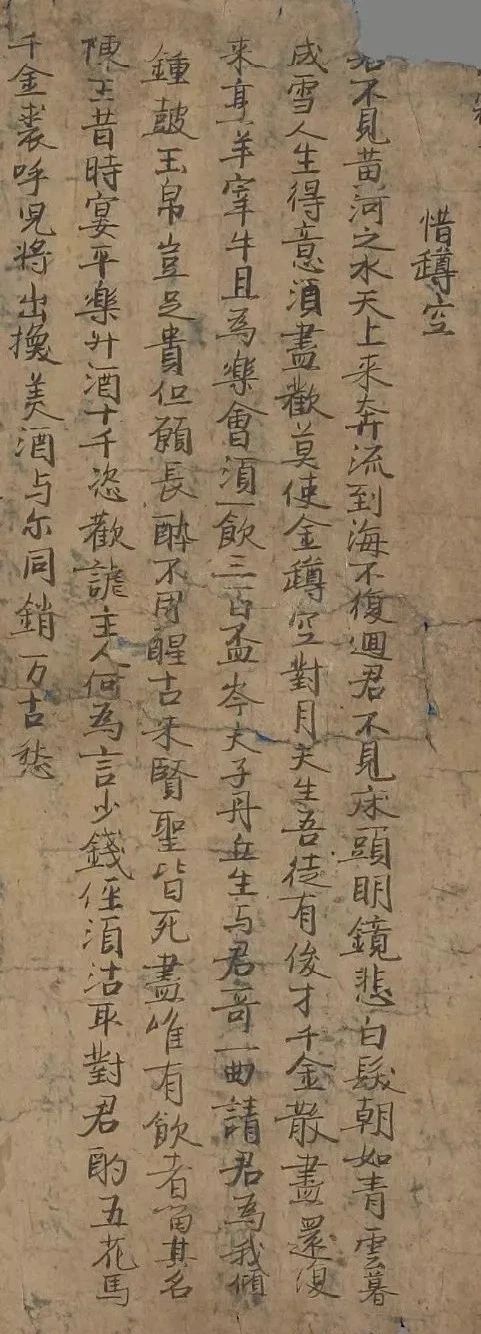 惜罇空
君不見黃河之水天上來奔流到海不復迴君不見床頭明鏡悲白髮朝如青雲暮
成雪人生得意酒盡歡莫使金罇空對月天生吾徒有俊才千金散盡還復
来烹羊宰牛且為樂會須一飲三百盃岑夫子丹丘生与君哥一曲請君為我傾
鍾皷玉帛豈足貴但願長醉不用醒古来賢聖皆死盡唯有飲者留其名
陳王昔時宴平樂斗酒十千恣歡謔主人何為言少錢徑須沽取對君酌五花馬
千金裘呼兒將出換美酒与尓同銷万古愁